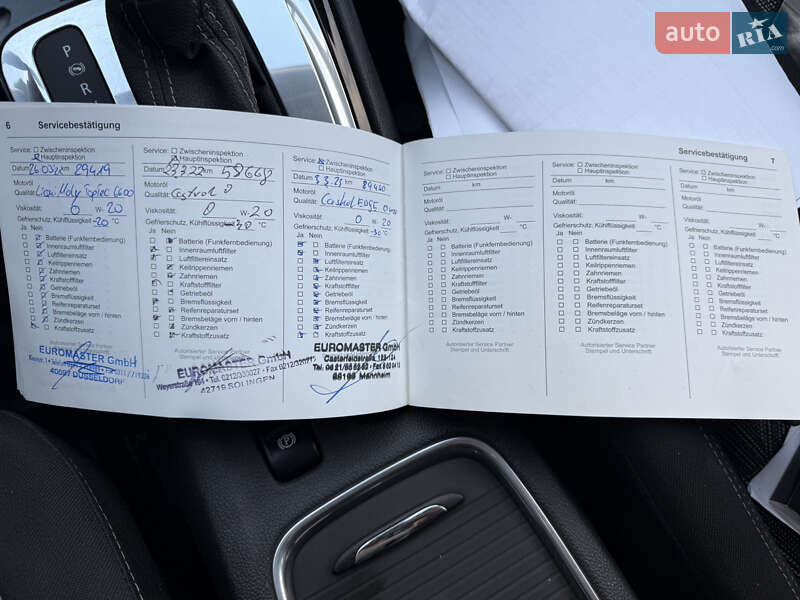 auto RIA .com
P
R
6 Servicebestätigung
Service: Zwischeninspektion
Hauptinspektion
Datum km 29419
Motoröl
Qualität: Liqui Moly TopTec 6600
Viskosität: 0 W- 20
Gefrierschutz, Kühlflüssigkeit -20 °C
Ja Nein
Batterie (Funkfernbedienung)
Innenraumluftfilter
Luftfiltereinsatz
Keilrippenriemen
Zahnriemen
Kraftstofffilter
Getriebeöl
Bremsflüssigkeit
Reifenreparaturset
Bremsbeläge vorn / hinten
Zündkerzen
Kraftstoffzusatz
EUROMASTER GmbH
40597 DÜSSELDORF
Service: Zwischeninspektion
Hauptinspektion
Datum km 58668
Motoröl
Qualität: Castrol
Viskosität: 0 W- 20
Gefrierschutz, Kühlflüssigkeit -38 °C
Ja Nein
Batterie (Funkfernbedienung)
Innenraumluftfilter
Luftfiltereinsatz
Keilrippenriemen
Zahnriemen
Kraftstofffilter
Getriebeöl
Bremsflüssigkeit
Reifenreparaturset
Bremsbeläge vorn / hinten
Zündkerzen
Kraftstoffzusatz
Autorisierter Service Partner
Stempel und Unterschrift
EUROMASTER GmbH
Weyerstraße Tel. 0212/320027 • Fax
42719 SOLINGEN
Service: Zwischeninspektion
Hauptinspektion
Datum 3.3.25 km 89460
Motoröl
Qualität: Castrol EDGE
Viskosität: 0 W- 20
Gefrierschutz, Kühlflüssigkeit -30 °C
Ja Nein
Batterie (Funkfernbedienung)
Innenraumluftfilter
Luftfiltereinsatz
Keilrippenriemen
Zahnriemen
Kraftstofffilter
Getriebeöl
Bremsflüssigkeit
Reifenreparaturset
Bremsbeläge vorn / hinten
Zündkerzen
Kraftstoffzusatz
EUROMASTER GmbH
Casterfeldstraße
Mannheim
Servicebestätigung 7
Service: Zwischeninspektion
Hauptinspektion
Datum km
Motoröl
Qualität:
Viskosität: W-
Gefrierschutz, Kühlflüssigkeit °C
Ja Nein
Batterie (Funkfernbedienung)
Innenraumluftfilter
Luftfiltereinsatz
Keilrippenriemen
Zahnriemen
Kraftstofffilter
Getriebeöl
Bremsflüssigkeit
Reifenreparaturset
Bremsbeläge vorn / hinten
Zündkerzen
Kraftstoffzusatz
Autorisierter Service Partner
Stempel und Unterschrift
Service: Zwischeninspektion
Hauptinspektion
Datum km
Motoröl
Qualität:
Viskosität: W-
Gefrierschutz, Kühlflüssigkeit °C
Ja Nein
Batterie (Funkfernbedienung)
Innenraumluftfilter
Luftfiltereinsatz
Keilrippenriemen
Zahnriemen
Kraftstofffilter
Getriebeöl
Bremsflüssigkeit
Reifenreparaturset
Bremsbeläge vorn / hinten
Zündkerzen
Kraftstoffzusatz
Autorisierter Service Partner
Stempel und Unterschrift
Service: Zwischeninspektion
Hauptinspektion
Datum km
Motoröl
Qualität:
Viskosität: W-
Gefrierschutz, Kühlflüssigkeit °C
Ja Nein
Batterie (Funkfernbedienung)
Innenraumluftfilter
Luftfiltereinsatz
Keilrippenriemen
Zahnriemen
Kraftstofffilter
Getriebeöl
Bremsflüssigkeit
Reifenreparaturset
Bremsbeläge vorn / hinten
Zündkerzen
Kraftstoffzusatz
Autorisierter Service Partner
Stempel und Unterschrift